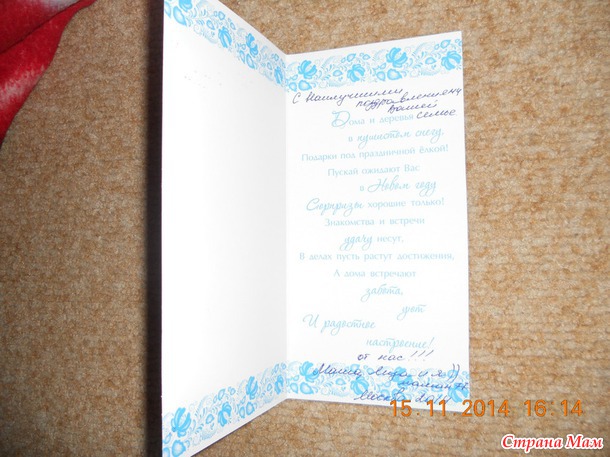 С Наилучшими
поздравлениями
Вашей
семье
Дома и деревья
в пушистом снегу,
Подарки под праздничной ёлкой!
Пускай ожидают Вас
в Новом году
Сюрпризы хорошие только!
Знакомства и встречи
удачу несут,
В делах пусть растут достижения,
А дома встречают
забота,
уют
И радостное
настроение!
от нас!!!
и я))
Москва
15 11 2014 16 14
Страна Мам